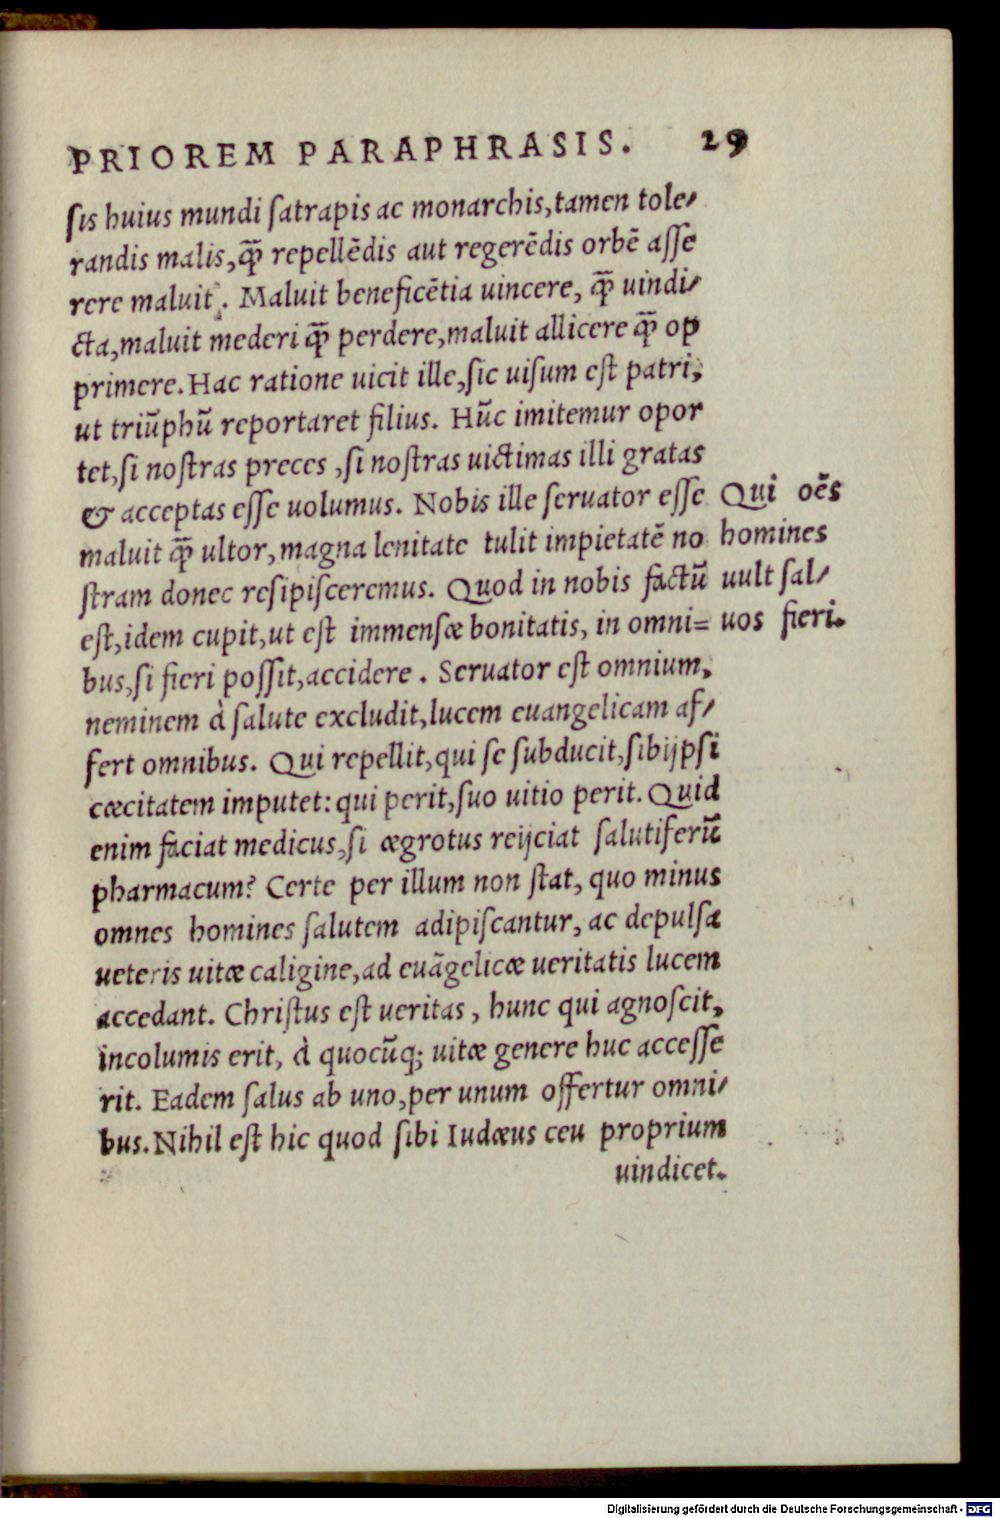 PRIOREM PARAPHRASIS. 29
sis huius mundi satrapis ac monarchis, tamen tole⸗
randis malis, q̃ꝑ repellẽdis aut regerẽdis orbẽ asse
rere maluit. Maluit beneficẽtia uincere, q̃ꝑ uindi⸗
cta, maluit mederi q̃ꝑ perdere, maluit allicere q̃ꝑ op
primere. Hac ratione uicit ille, sic uisum est patri,
ut triũphũ reportaret filius. Hũc imitemur opor
tet, si nostras preces, si nostras uictimas illi gratas
& acceptas esse uolumus. Nobis ille seruator esse
maluit q̃ꝑ ultor, magna lenitate tulit impietatẽ no
stram donec resipisceremus. Quod in nobis factũ
est, idem cupit, ut est immensæ bonitatis, in omni=
bus, si fieri possit, accidere. Seruator est omnium,
neminem à salute excludit, lucem euangelicam af⸗
fert omnibus. Qui repellit, qui se subducit, sibijpsi
cæcitatem imputet: qui perit, suo uitio perit. Quid
enim faciat medicus, si ægrotus reijciat salutiferũ
pharmacum? Certe per illum non stat, quo minus
omnes homines salutem adipiscantur, ac depulsa
ueteris uitæ caligine, ad euãgelicæ ueritatis lucem
accedant. Christus est ueritas, hunc qui agnoscit,
incolumis erit, à quocũq; uitæ genere huc accesse
rit. Eadem salus ab uno, per unum offertur omni⸗
bus. Nihil est hic quod sibi Iudæus ceu proprium
uindicet.
Qui oẽs
homines
uult sal⸗
uos fieri.
Digitalisierung gefördert durch die Deutsche Forschungsgemeinschaft - DFG